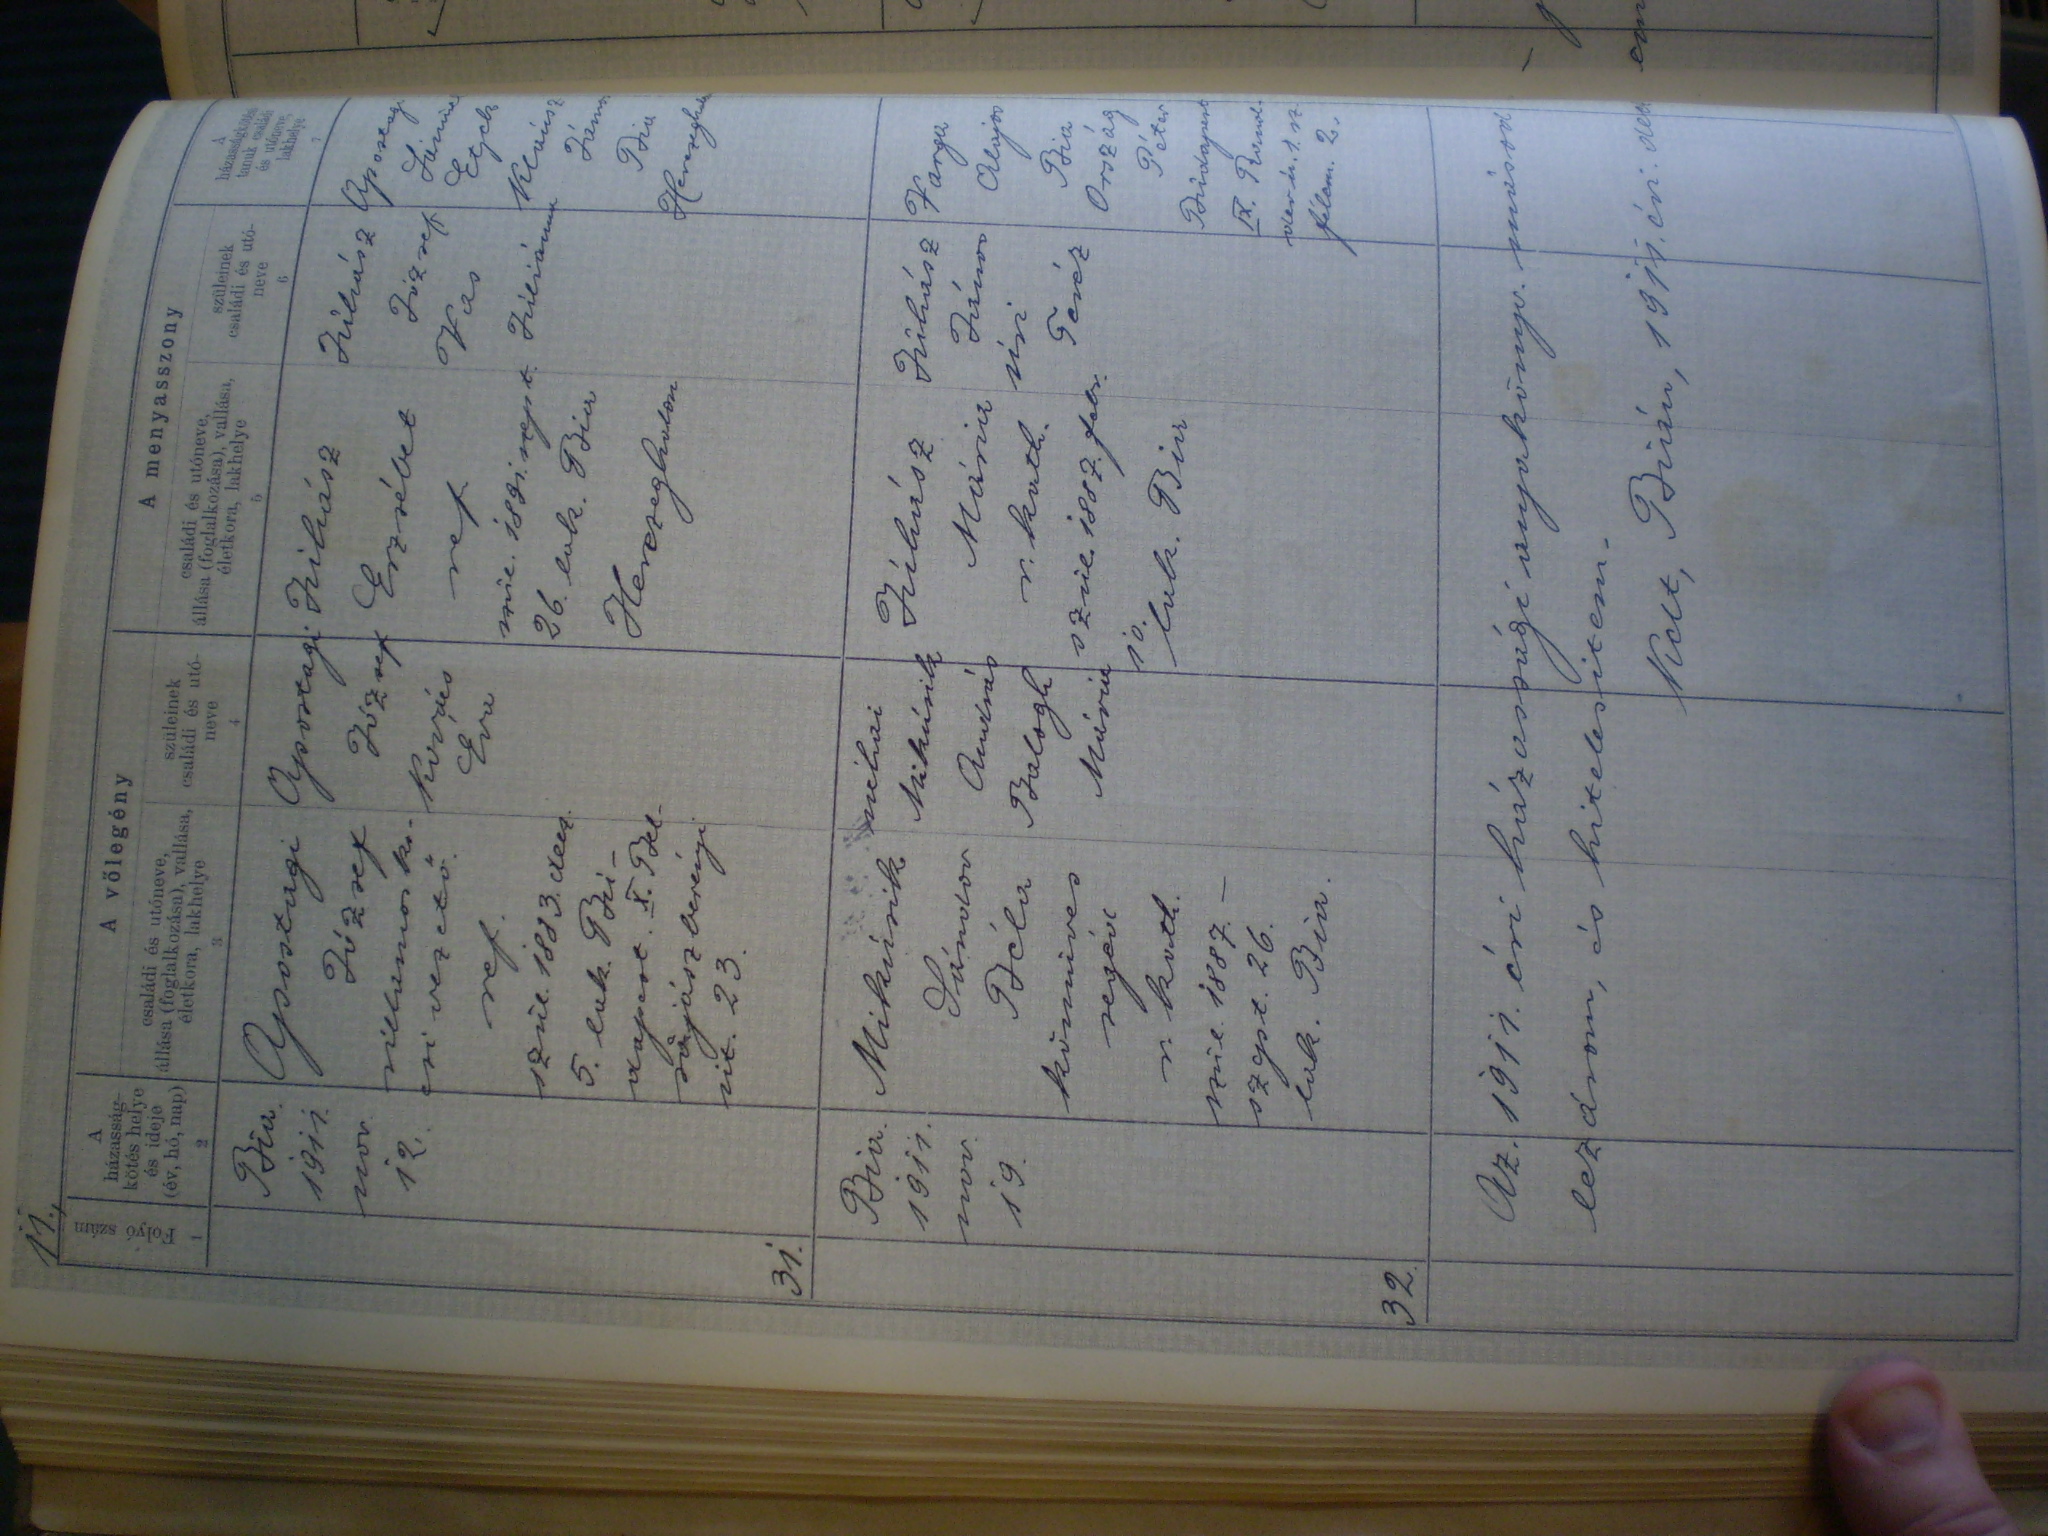 11.,
A vőlegény
A menyasszony
Folyó szám
1
A
házasság-
kötés helye
és ideje
(év, hó, nap)
2
családi és utóneve,
állása (foglalkozása), vallása,
életkora, lakhelye
3
szüleinek
családi és utó-
neve
4
családi és utóneve,
állása (foglalkozása), vallása,
életkora, lakhelye
5
szüleinek
családi és utó-
neve
6
A
házasságkötési
tanuk családi
és utóneve,
lakhelye
7
31.
Bia.
1911.
nov.
12.
Apostagi
József
villamos ko-
csi vezető.
ref.
szül. 1883. dec.
5. lak. Bu-
dapest. X. Bel-
jászberényi
út. 23.
Apostagi
József
Kovács
Éva
Juhász
Erzsébet
ref
szül. 1891. szept.
26. lak. Bia
Herceghalom
Juhász
József
Vas
Juliánna
Apostagi
Etyek
János
Bia
Herceghalom
32.
Bia.
1911.
nov.
19.
Mikusik
Sándor
Béla
kőmives
segéd
r. kath.
szül. 1887.-
szept. 26.
lak. Bia.
néhai
Mikusik
András
Balogh
Mária
Juhász
Mária
r. kath.
szül. 1887. febr.
10.
lak. Bia
Juhász
János
úri
Teréz
Varga
Alajos
Bia
Ország
Péter
Budapest
IX.
félem. 2.
Az. 1911. évi házassági anyakönyv. másod
lezárom, és hitelesitem.-
Kelt, Bián, 1911. évi. dec